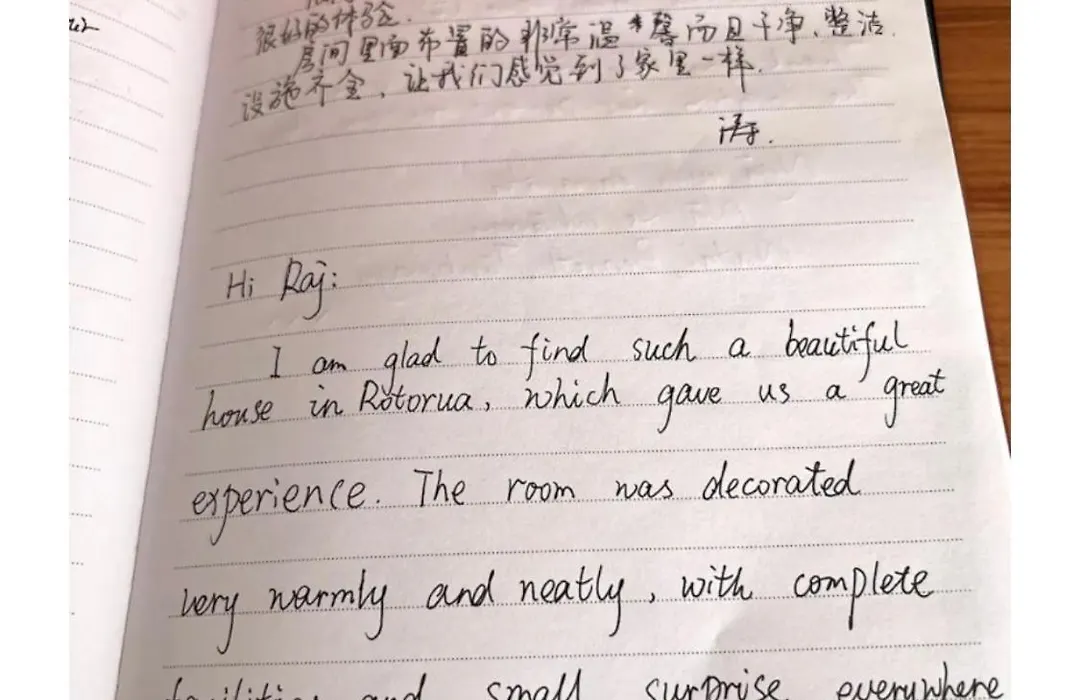 很好的体验.
房间里面布置的非常温馨而且干净、整洁.
设施齐全，让我们感觉到了家里一样.
涛.
Hi Raj:
I am glad to find such a beautiful
house in Rotorua, which gave us a great
experience. The room was decorated
very warmly and neatly, with complete
facilities and small surprise everywhere